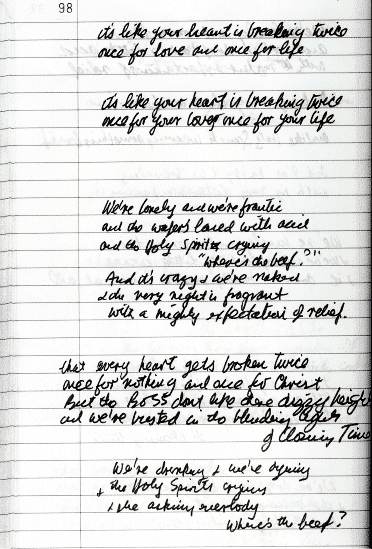 98
it's like your heart is breaking twice
once for love and once for life
it's like your heart is breaking twice
once for your lover once for your life
We're lonely and we're frantic
and the wafers laced with acid
and the Holy Spirits crying
"where's the beef?"
And it's crazy & we're naked
& the very night is fragrant
with a mighty expectation of relief.
that every heart gets broken twice
once for nothing and once for Christ
But the BOSS dont like these dizzy heights
and we're busted in the blinding lights
of Closing Time
We're drinking & we're crying
& the Holy Spirits crying
& she asking everybody
Where's the beef?